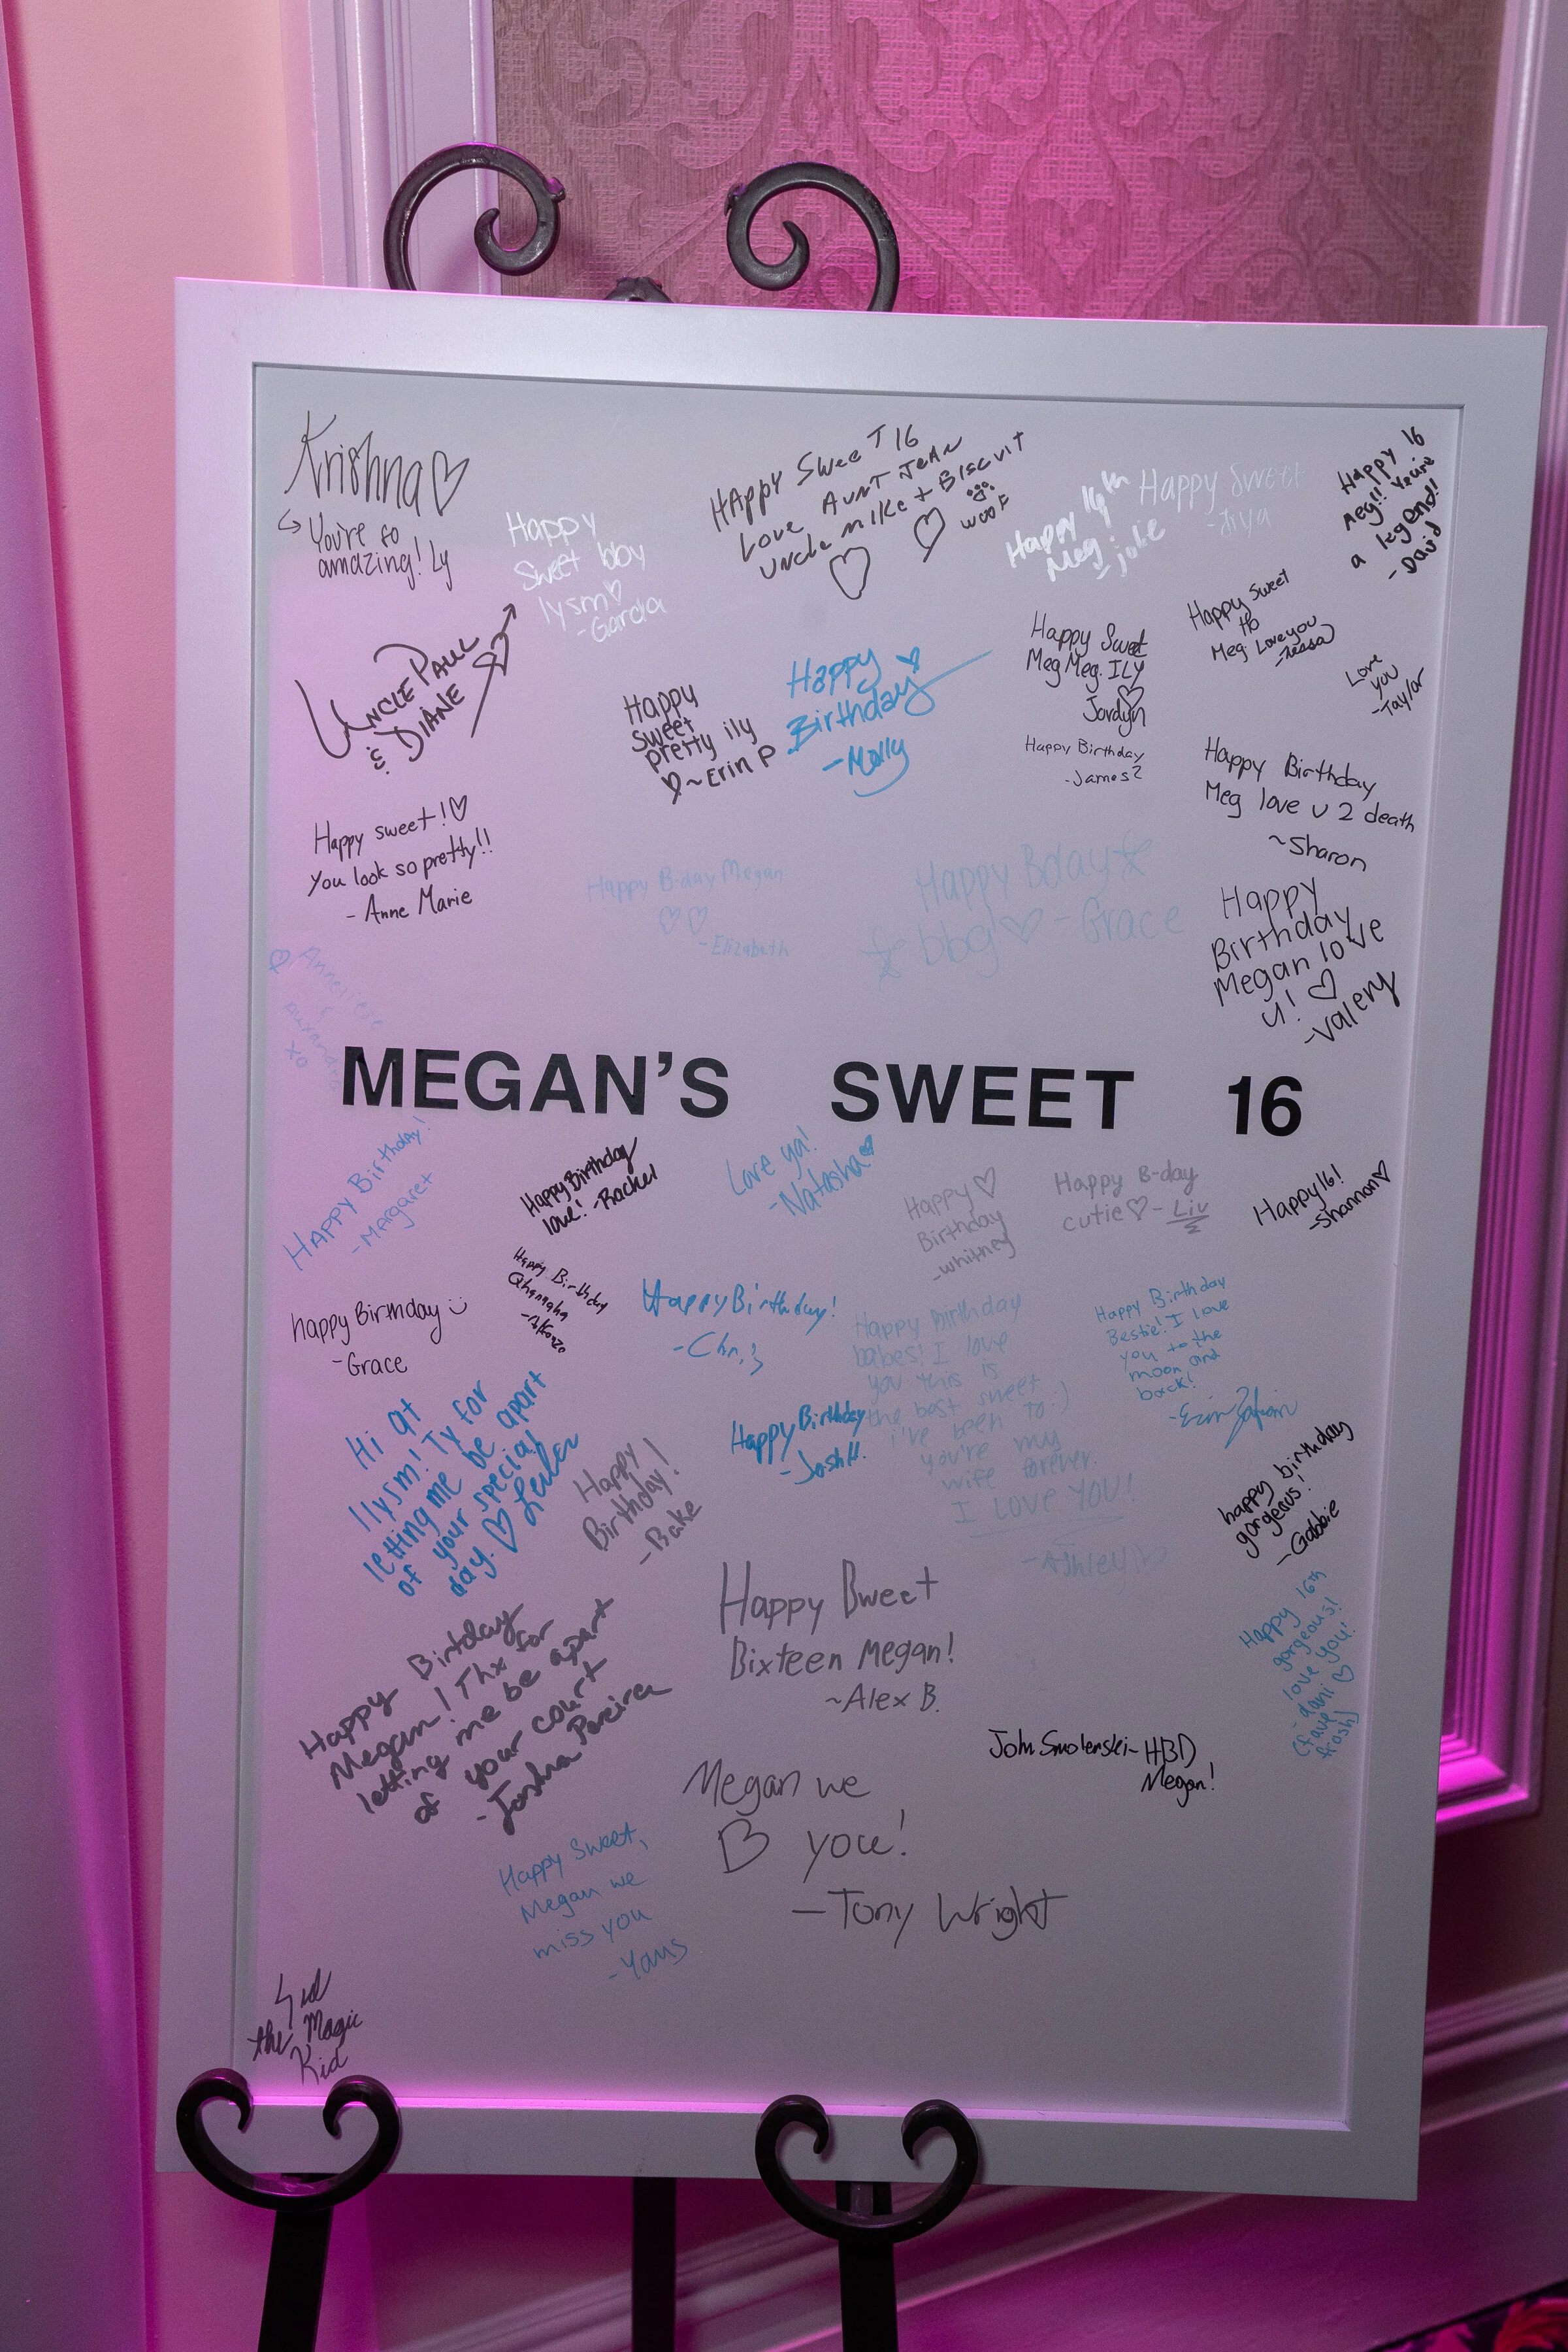 Krishna♡
↳ You're so
amazing! Ly
Happy
Sweet bby
lysm♡
-Garcia
HAPPY SweeT 16
Love AUNT JeAN
UNcle mIKe + BIscuIT
♡ ♡ WOOF
Happy 16th
Meg!
-jake
Happy Sweet
-Jiya
Happy 16
Meg!! You're
a legend!!
- David
UNCLE PAUL
& DIANE
Happy
sweet
pretty ily
♡~Erin P
Happy ♡
Birthday
-Molly
Happy Sweet
Meg Meg. ILY
♡
Jordyn
Happy Birthday
-James?
Happy Sweet
16
Meg Love you
-Tessa
Love
you
-Taylor
Happy Birthday
Meg love u 2 death
~Sharon
Happy sweet!♡
You look so pretty!!
- Anne Marie
Happy B-day Megan
♡♡
-Elizabeth
Happy Bday☆
☆ bbg♡ -Grace
Happy
Birthday
Megan love
u! ♡
-Valery
♡ Anneliese
&
xo
MEGAN'S SWEET 16
HAPPY Birthday!
- Margaret
Happy Birthday
love! -Rachel
Love ya!
-Natasha♡
Happy♡
Birthday
-whitney
Happy B-day
cutie♡-Liv
Happy 16!
-Shannon♡
happy Birthday
-Grace
Happy Birthday
Happy Birthday!
-Chris
Happy Birthday
babes! I love
you this is
the best sweet
i've been to:)
you're my
wife forever.
I LOVE YOU!
-Ashley♡
Happy Birthday
Bestie! I love
you to the
moon and
back!
-Erin
Hi at
Ilysm! Ty for
letting me be apart
of your special
day. ♡
Happy
Birthday!
-Bake
Happy Birthday
-Josh H.
happy birthday
gorgeous!
-Gabbie
Happy 16th
gorgeous!
love you!
- dani ♡
(fave
frosh)
Happy Birtday
Megan! Thx for
letting me be apart
of your court
-Joshua Pereira
Happy Bweet
Bixteen Megan!
~Alex B.
John Smolenski- HBD
Megan!
Megan we
♡ you!
—Tony Wright
Happy Sweet,
Megan we
miss you
-Yaus
Sid
the Magic
Kid